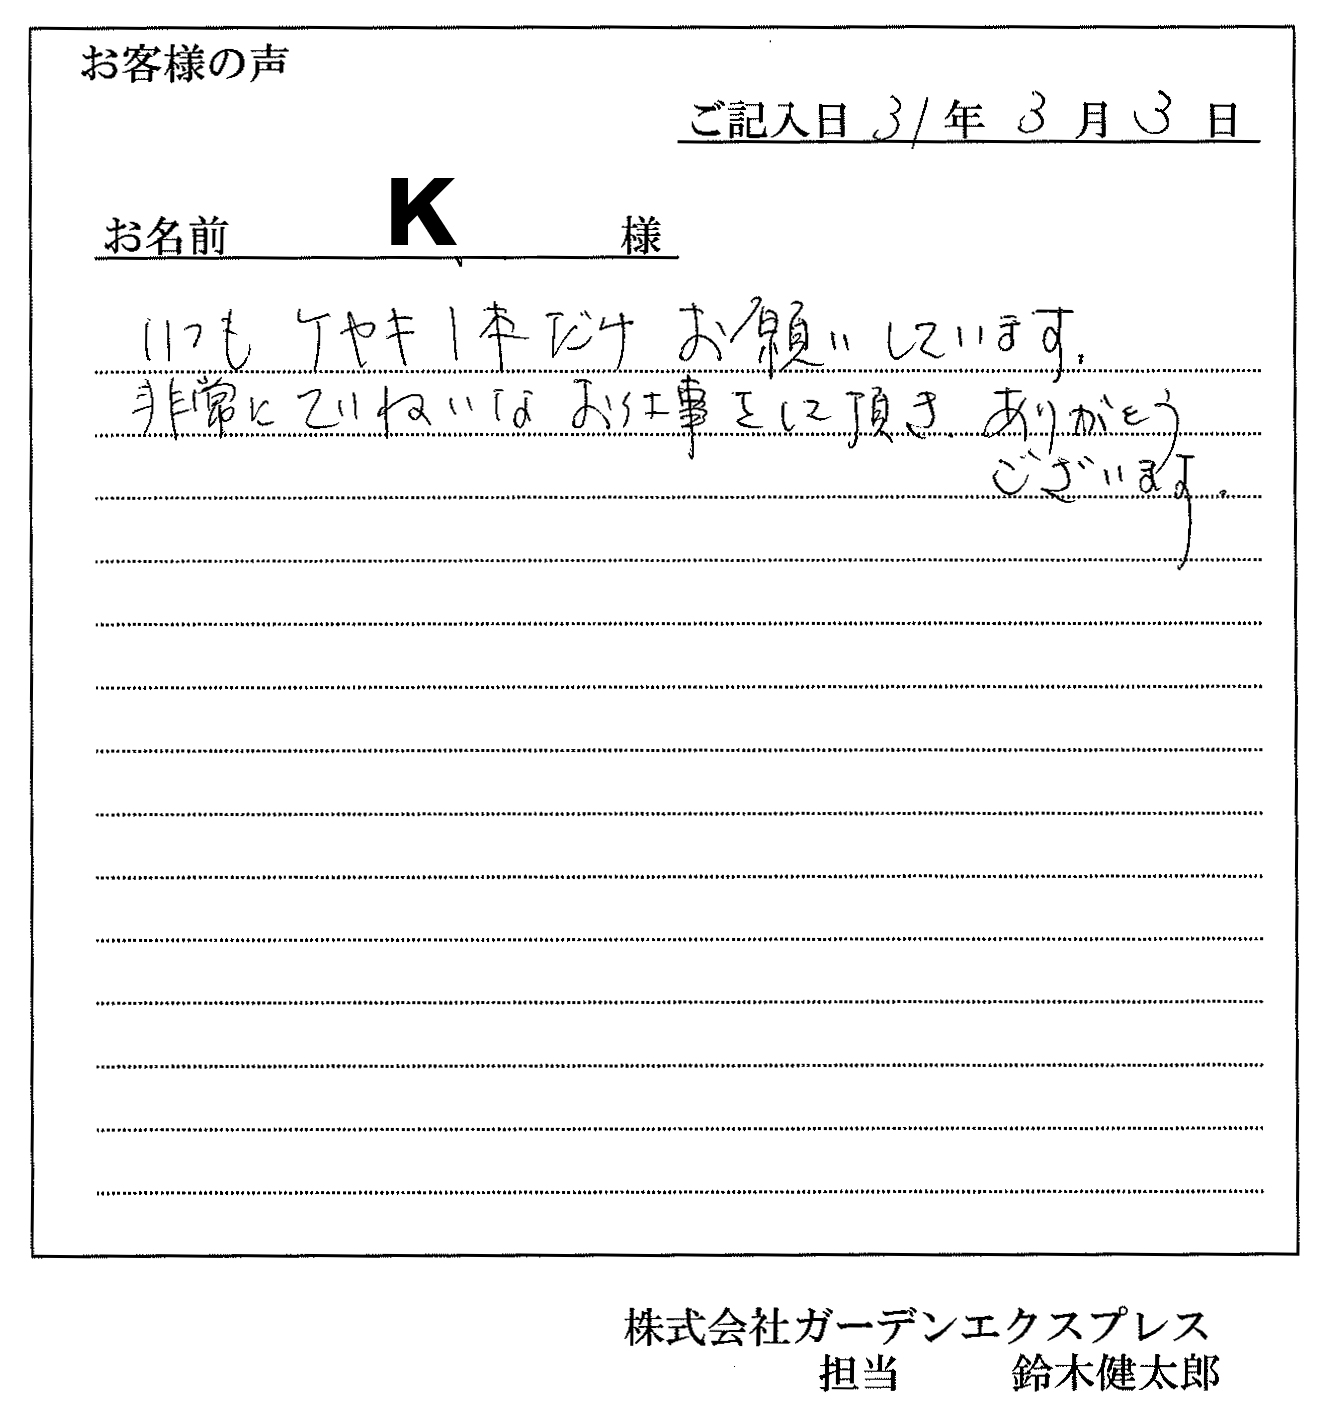 お客様の声
ご記入日 31年 3月 3日
お名前 K 様
いつもケヤキ1本だけお願いしています.
非常にていねいなお仕事をして頂き ありがとう
ございます.
株式会社ガーデンエクスプレス
担当 鈴木健太郎